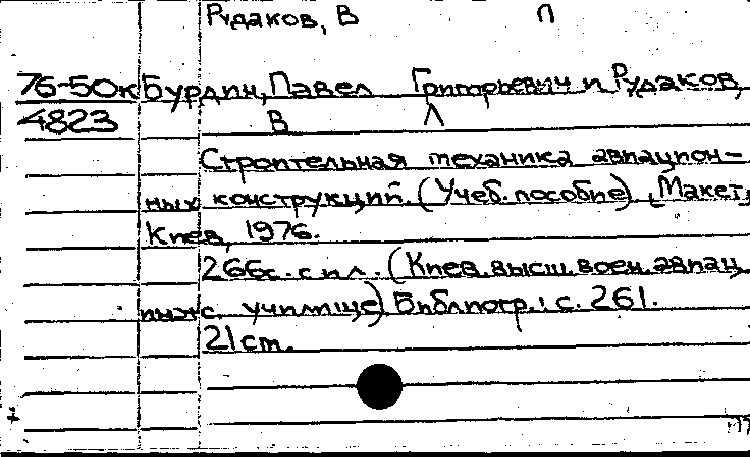 Рудаков, В П
76-50к Бурдин, Павел Григорьевич и Рудаков,
4823 В Л
Строительная механика авиацион-
ных конструкций. (Учеб. пособие). [Макет,
Киев, 1976.
266с. с ил. (Киев. высш. воен. авиац.
инж. училище) Библиогр.: с. 261.
21 cm.